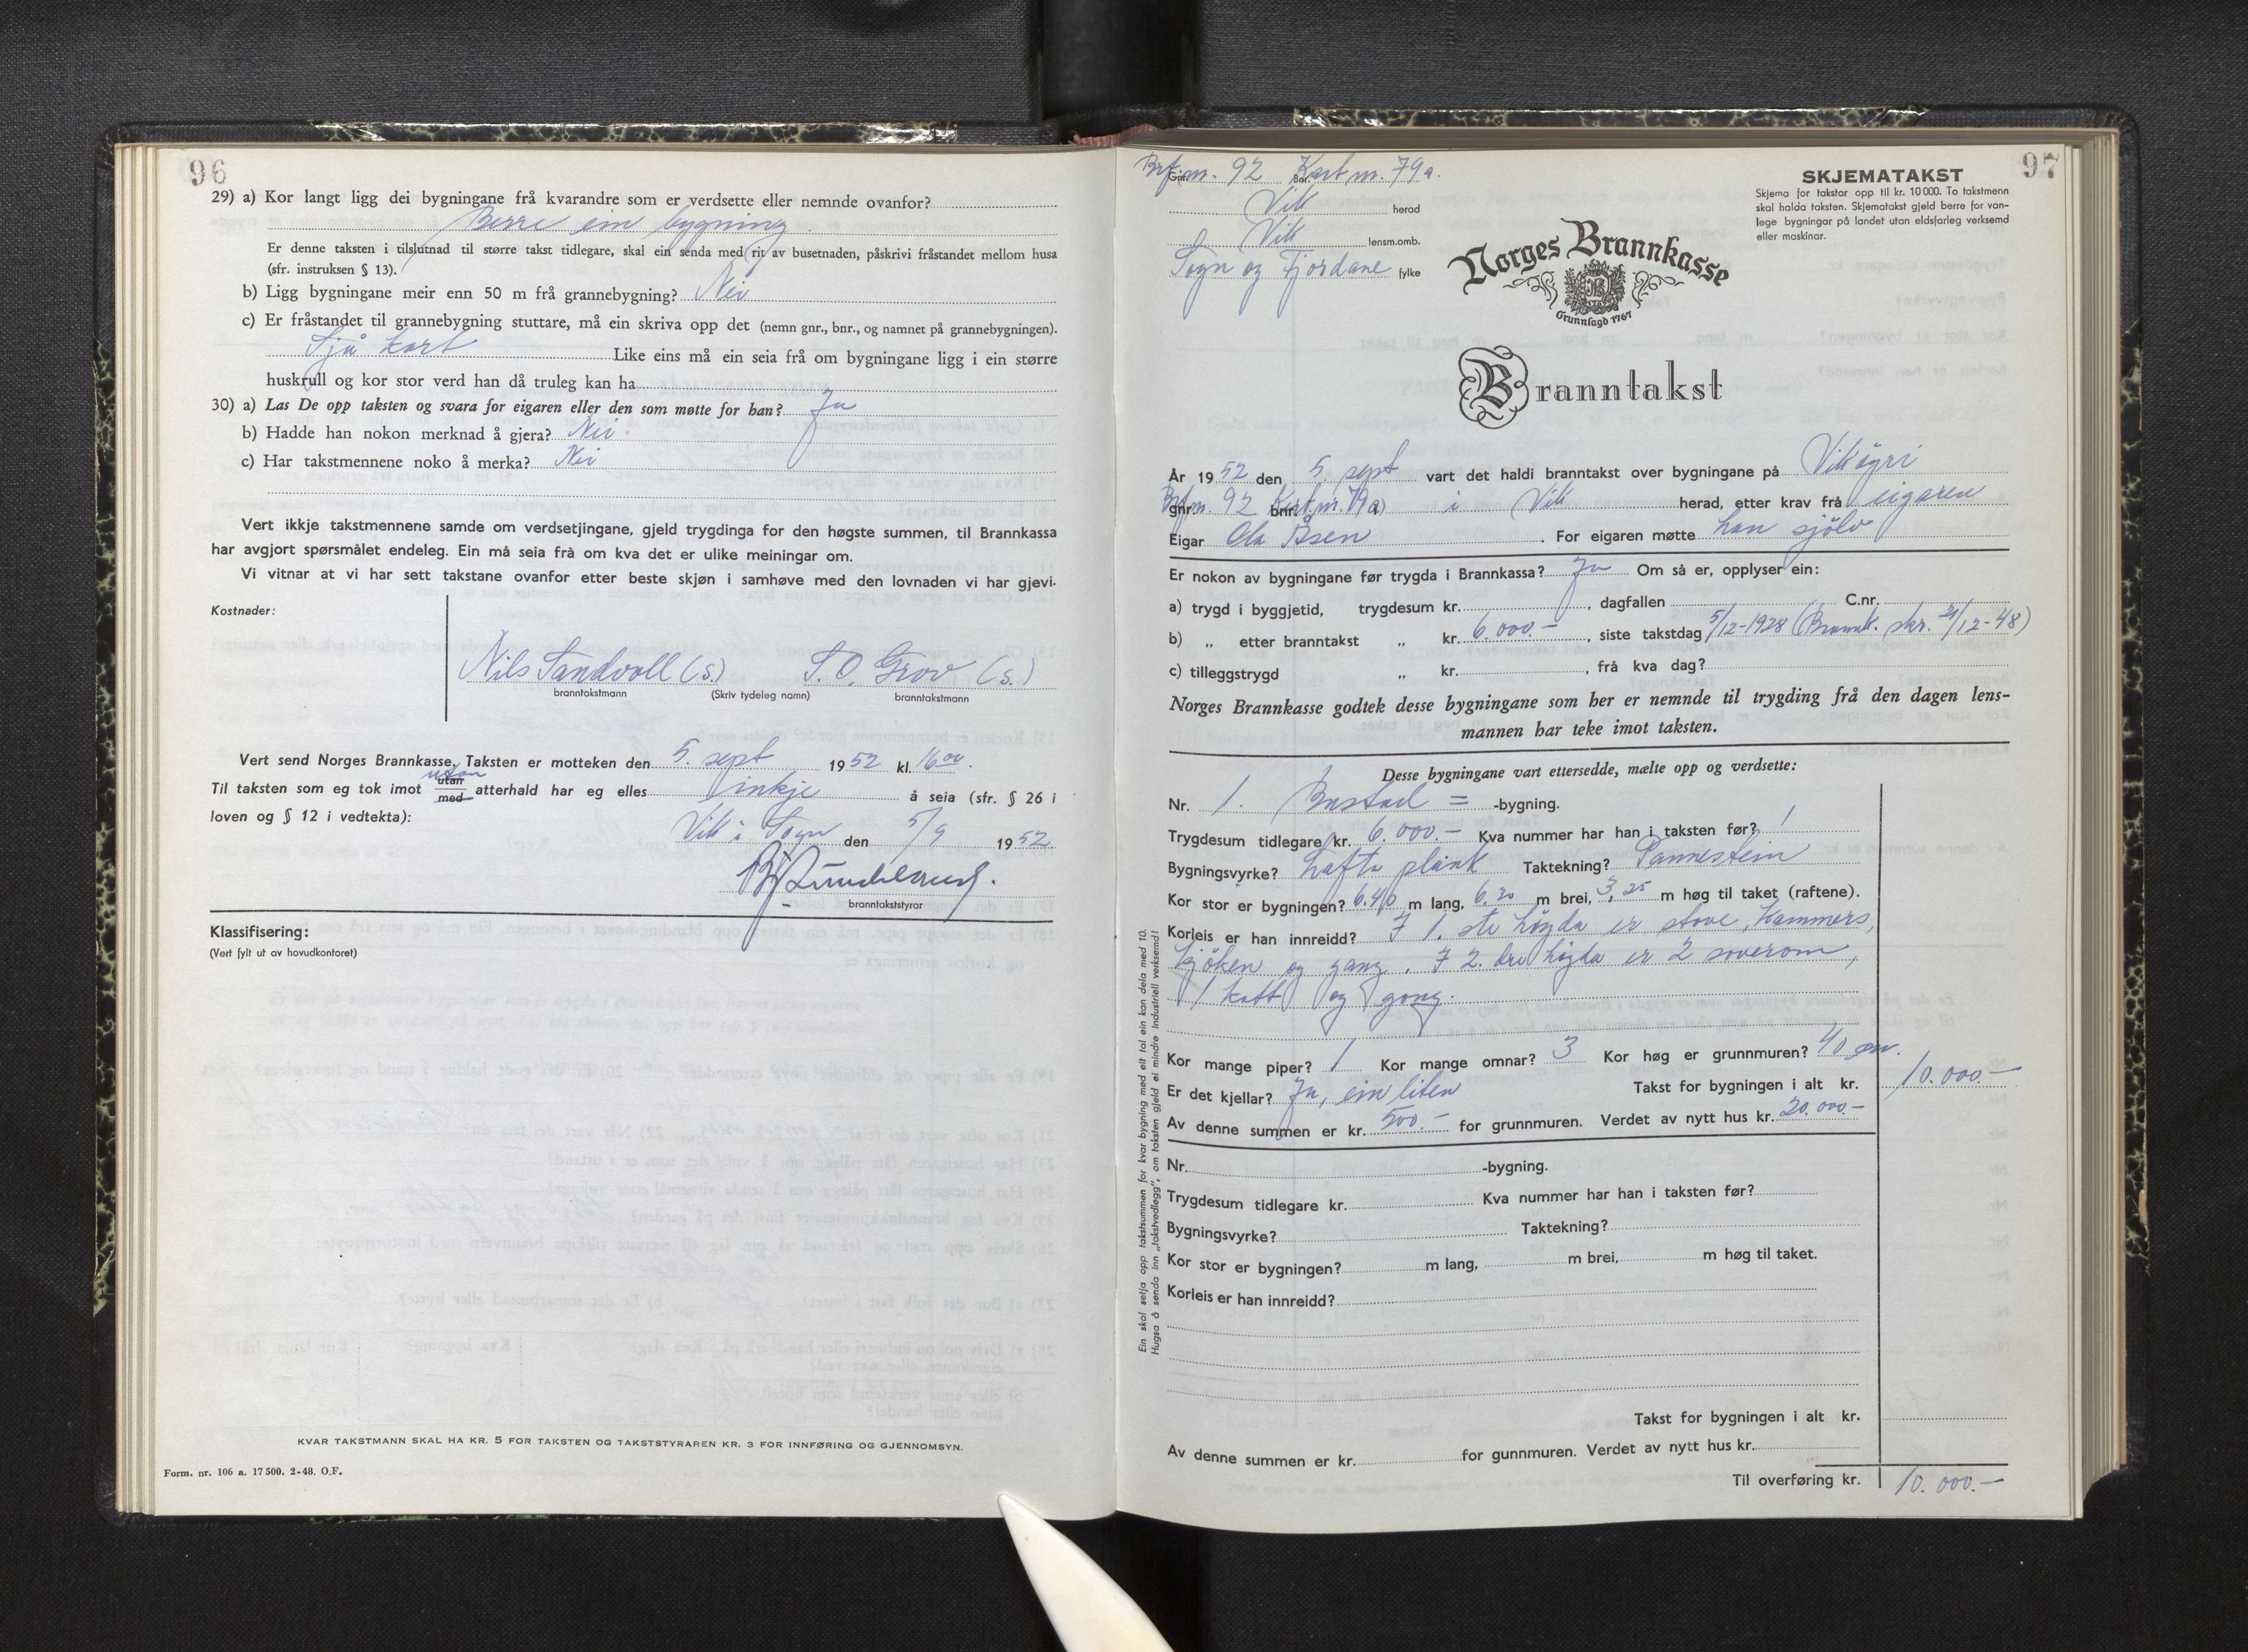 96
29) a) Kor langt ligg dei bygningane frå kvarandre som er verdsette eller nemnde ovanfor?
Berre ein bygning.
Er denne taksten i tilslutnad til større takst tidlegare, skal ein senda med rit av busetnaden, påskrivi fråstandet mellom husa
(sfr. instruksen § 13).
b) Ligg bygningane meir enn 50 m frå grannebygning? Nei
c) Er fråstandet til grannebygning stuttare, må ein skriva opp det (nemn gnr., bnr., og namnet på grannebygningen).
Sjå kart Like eins må ein seia frå om bygningane ligg i ein større
huskrull og kor stor verd han då truleg kan ha
30) a) Las De opp taksten og svara for eigaren eller den som møtte for han? Ja
b) Hadde han nokon merknad å gjera? Nei
c) Har takstmennene noko å merka? Nei
Vert ikkje takstmennene samde om verdsetjingane, gjeld trygdinga for den høgste summen, til Brannkassa
har avgjort spørsmålet endeleg. Ein må seia frå om kva det er ulike meiningar om.
Vi vitnar at vi har sett takstane ovanfor etter beste skjøn i samhøve med den lovnaden vi har gjevi.
Kostnader:
Nils Sandvoll (s.) S. O. Grov (s.)
branntakstmann (Skriv tydeleg namn) branntakstmann
Vert send Norges Brannkasse. Taksten er motteken den 5. sept 1952 kl. 16 00.
utan
Til taksten som eg tok imot utan med atterhald har eg elles inkje å seia (sfr. § 26 i
loven og § 12 i vedtekta):
Vik i Sogn den 5/9 1952
branntakststyrar
Klassifisering:
(Vert fylt ut av hovudkontoret)
KVAR TAKSTMANN SKAL HA KR. 5 FOR TAKSTEN OG TAKSTSTYRAREN KR. 3 FOR INNFØRING OG GJENNOMSYN.
Form. nr. 106 a. 17 500. 2-48. O.F.
97
Gnr. Brf.nr. 92 Bnr. Kart nr. 79a.
Vik herad
Vik lensm.omb.
Sogn og Fjordane fylke
SKJEMATAKST
Skjema for takstar opp til kr. 10 000. To takstmenn
skal halda taksten. Skjematakst gjeld berre for van-
lege bygningar på landet utan eldsfarleg verksemd
eller maskinar.
Norges Brannkasse
Grunnlagd 1767
Branntakst
År 1952 den 5. sept vart det haldi branntakst over bygningane på Vikøyri
gnr. Brf.nr. 92 bnr. Kart.nr. 79a) i Vik herad, etter krav frå eigaren
Eigar Ola Åsen. For eigaren møtte han sjölv
Er nokon av bygningane før trygda i Brannkassa? Ja Om så er, opplyser ein:
a) trygd i byggjetid, trygdesum kr. , dagfallen C.nr.
b) „ etter branntakst „ kr. 6.000.– , siste takstdag 5/12-1928 (Brannk. skr. 21/12-48)
c) tilleggstrygd „ kr. , frå kva dag?
Norges Brannkasse godtek desse bygningane som her er nemnde til trygding frå den dagen lens-
mannen har teke imot taksten.
Desse bygningane vart ettersedde, mælte opp og verdsette:
Nr. 1. Bustad = -bygning.
Trygdesum tidlegare kr. 6.000.– Kva nummer har han i taksten før? 1
Bygningsvyrke? Lafta plank Taktekning? Pannestein
Kor stor er bygningen? 6.40 m lang, 6,20 m brei, 3,25 m høg til taket (raftene).
Korleis er han innreidd? I 1. ste høgda er stove, kammers,
kjöken og gang. I 2. dre høgda er 2 soverom,
1 kott og gong.
Kor mange piper? 1 Kor mange omnar? 3 Kor høg er grunnmuren? 40 cm.
Er det kjellar? Ja, ein liten Takst for bygningen i alt kr. 10.000.–
Av denne summen er kr. 500.– for grunnmuren. Verdet av nytt hus kr. 20.000.–
Nr. -bygning.
Trygdesum tidlegare kr. Kva nummer har han i taksten før?
Bygningsvyrke? Taktekning?
Kor stor er bygningen? m lang, m brei, m høg til taket.
Korleis er han innreidd?
Takst for bygningen i alt kr.
Av denne summen er kr. for gunnmuren. Verdet av nytt hus kr.
Til overføring kr. 10.000.–
Ein skal setja opp takstsummen for kvar bygning med eit tal ein kan dela med 10.
Hugsa å senda inn „takstvedlegg“, om taksten gjeld ei mindre industriell verksemd!